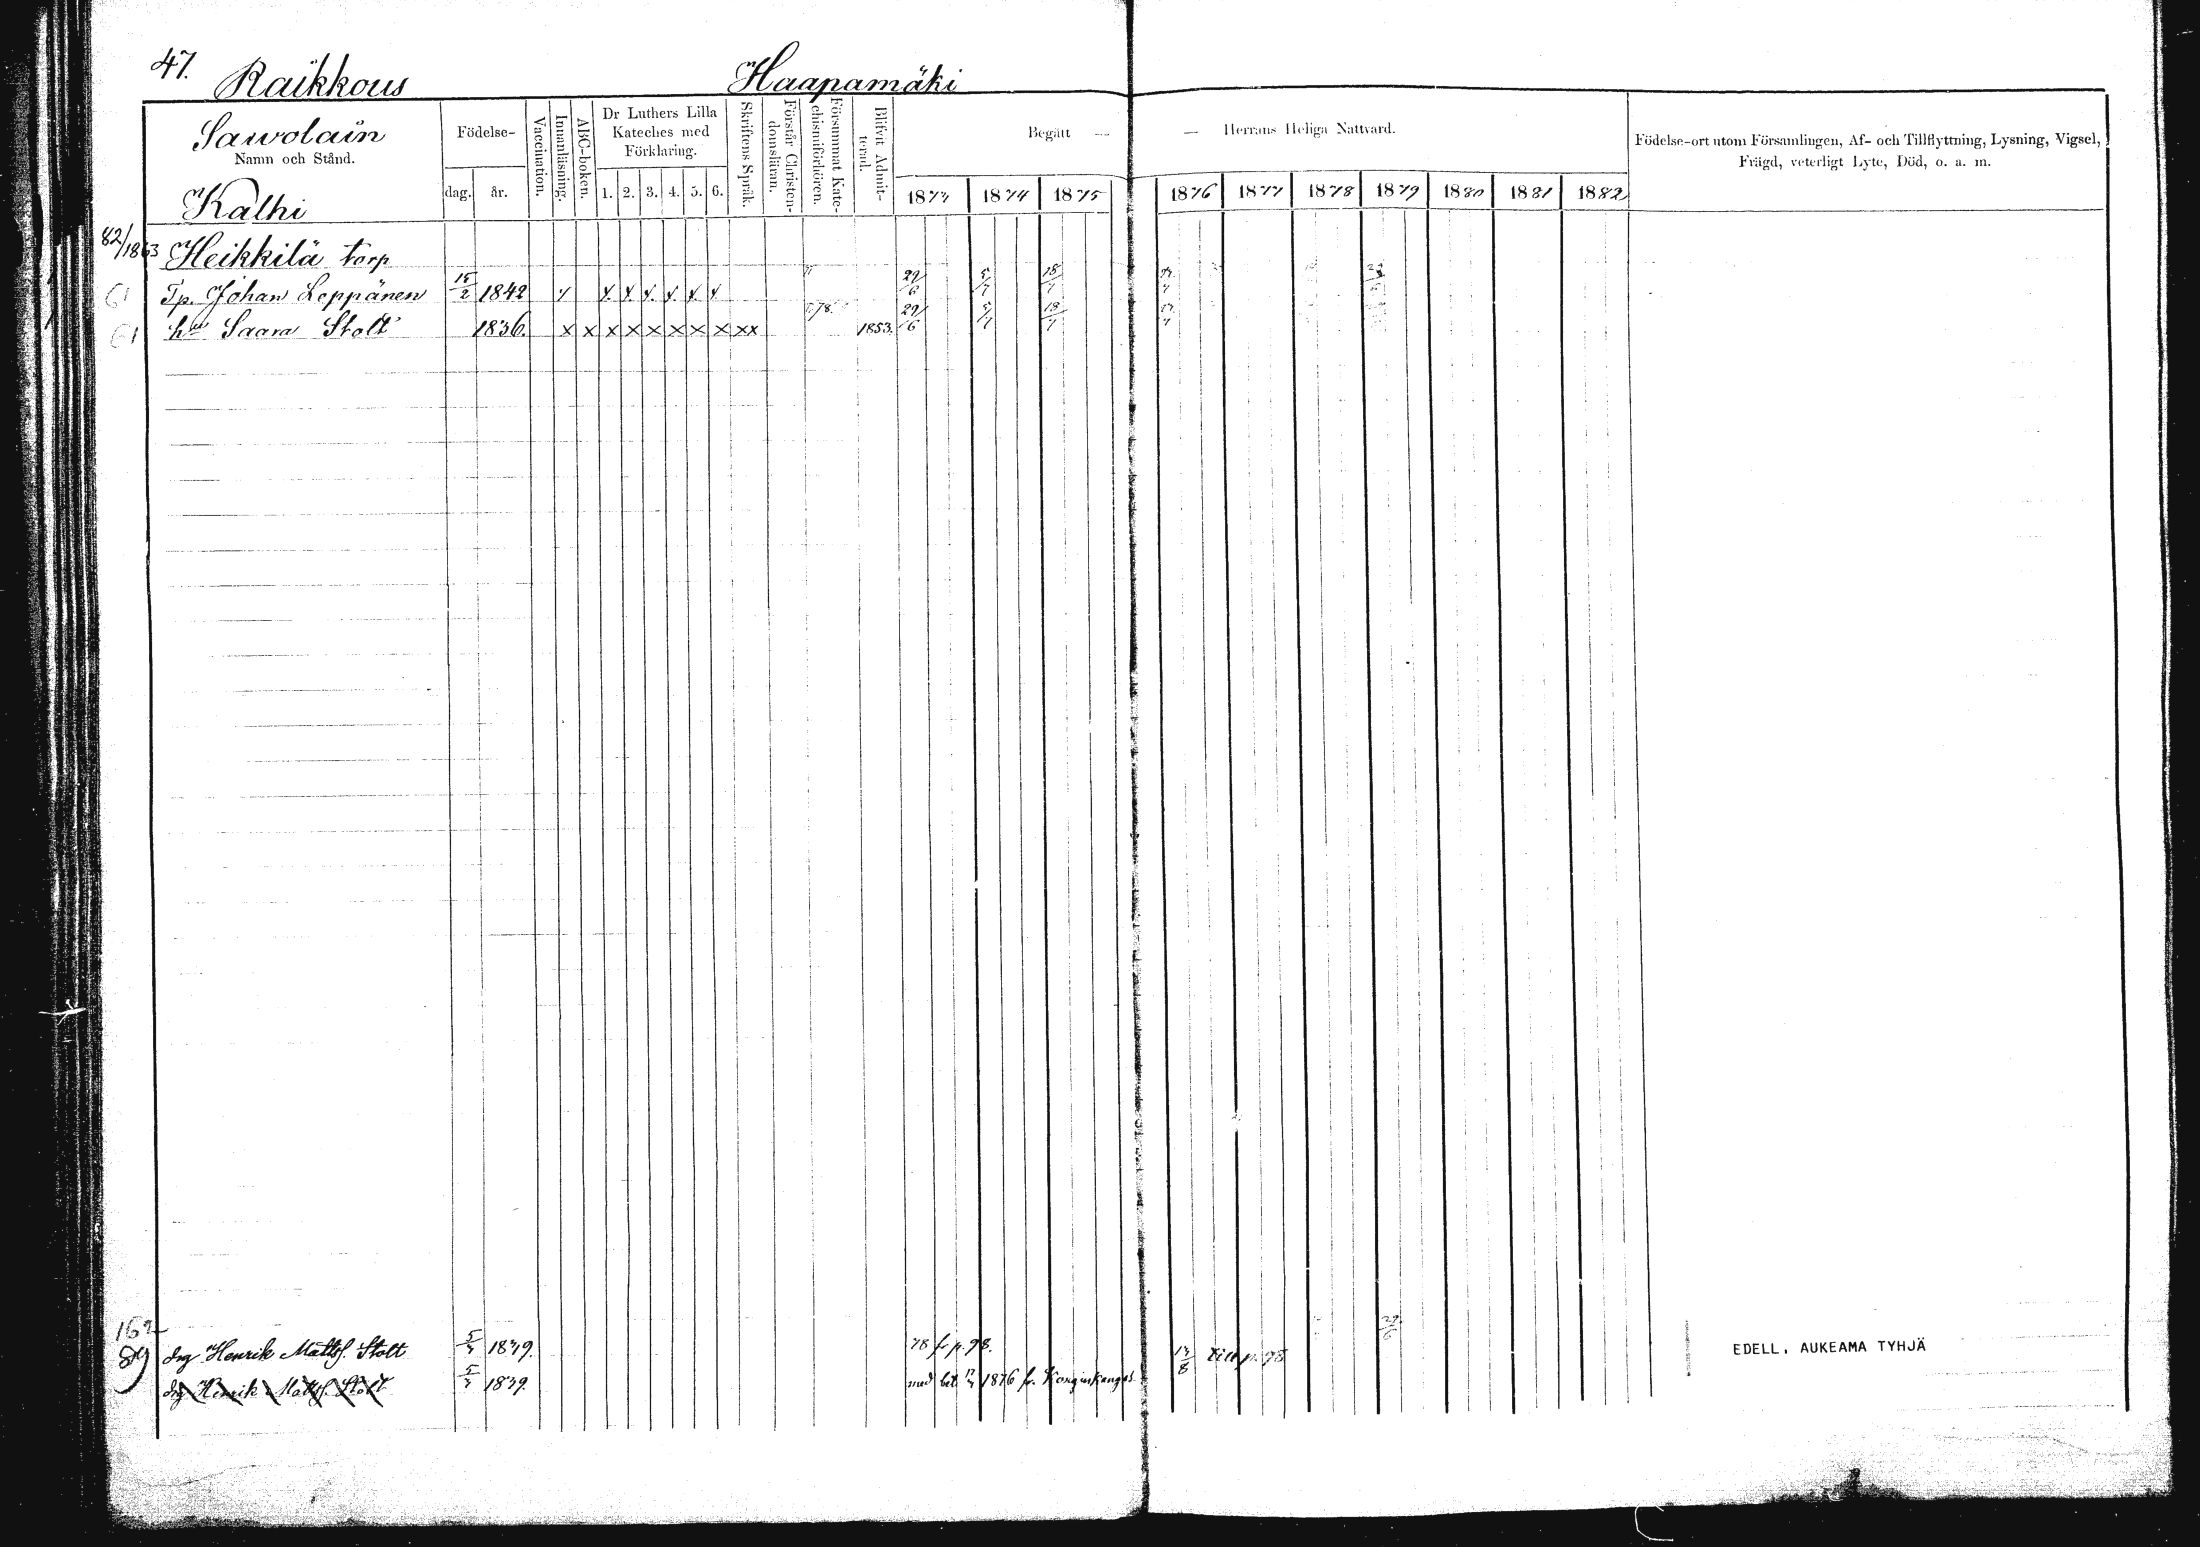 47. Raikkous Haapamäki
Sawolain
Namn och Stånd.
Kalhi
Födelse-
dag. år.
Vaccination.
Innanläsning.
ABC-boken.
Dr Luthers Lilla
Kateches med
Förklaring.
1. 2. 3. 4. 5. 6.
Skriftens Språk.
Förstår Christen-
domsläran.
Försummat Kate-
chismiförhören.
Blifvit Admit-
terad.
Begått — — Herrans Heliga Nattvard.
1873 1874 1875 1876 1877 1878 1879 1880 1881 1882
Födelse-ort utom Församlingen, Af- och Tillflyttning, Lysning, Vigsel,
Frägd, veterligt Lyte, Död, o. a. m.
82/1863 Heikkilä torp
61 Tp. Johan Leppänen 15/2 1842 29/6 5/7 18/7
61 hu Saara Stolt 1836. x x x x x x x x xx 1853. 29/6 5/7 18/7
162
89 drg Henrik Mattsf. Stolt 1839. 78 fr p. 98. till p. 98
drg Henrik Mattsf. Stolt 1839. med bet. 1876 fr. Konginkangas
EDELL. AUKEAMA TYHJÄ